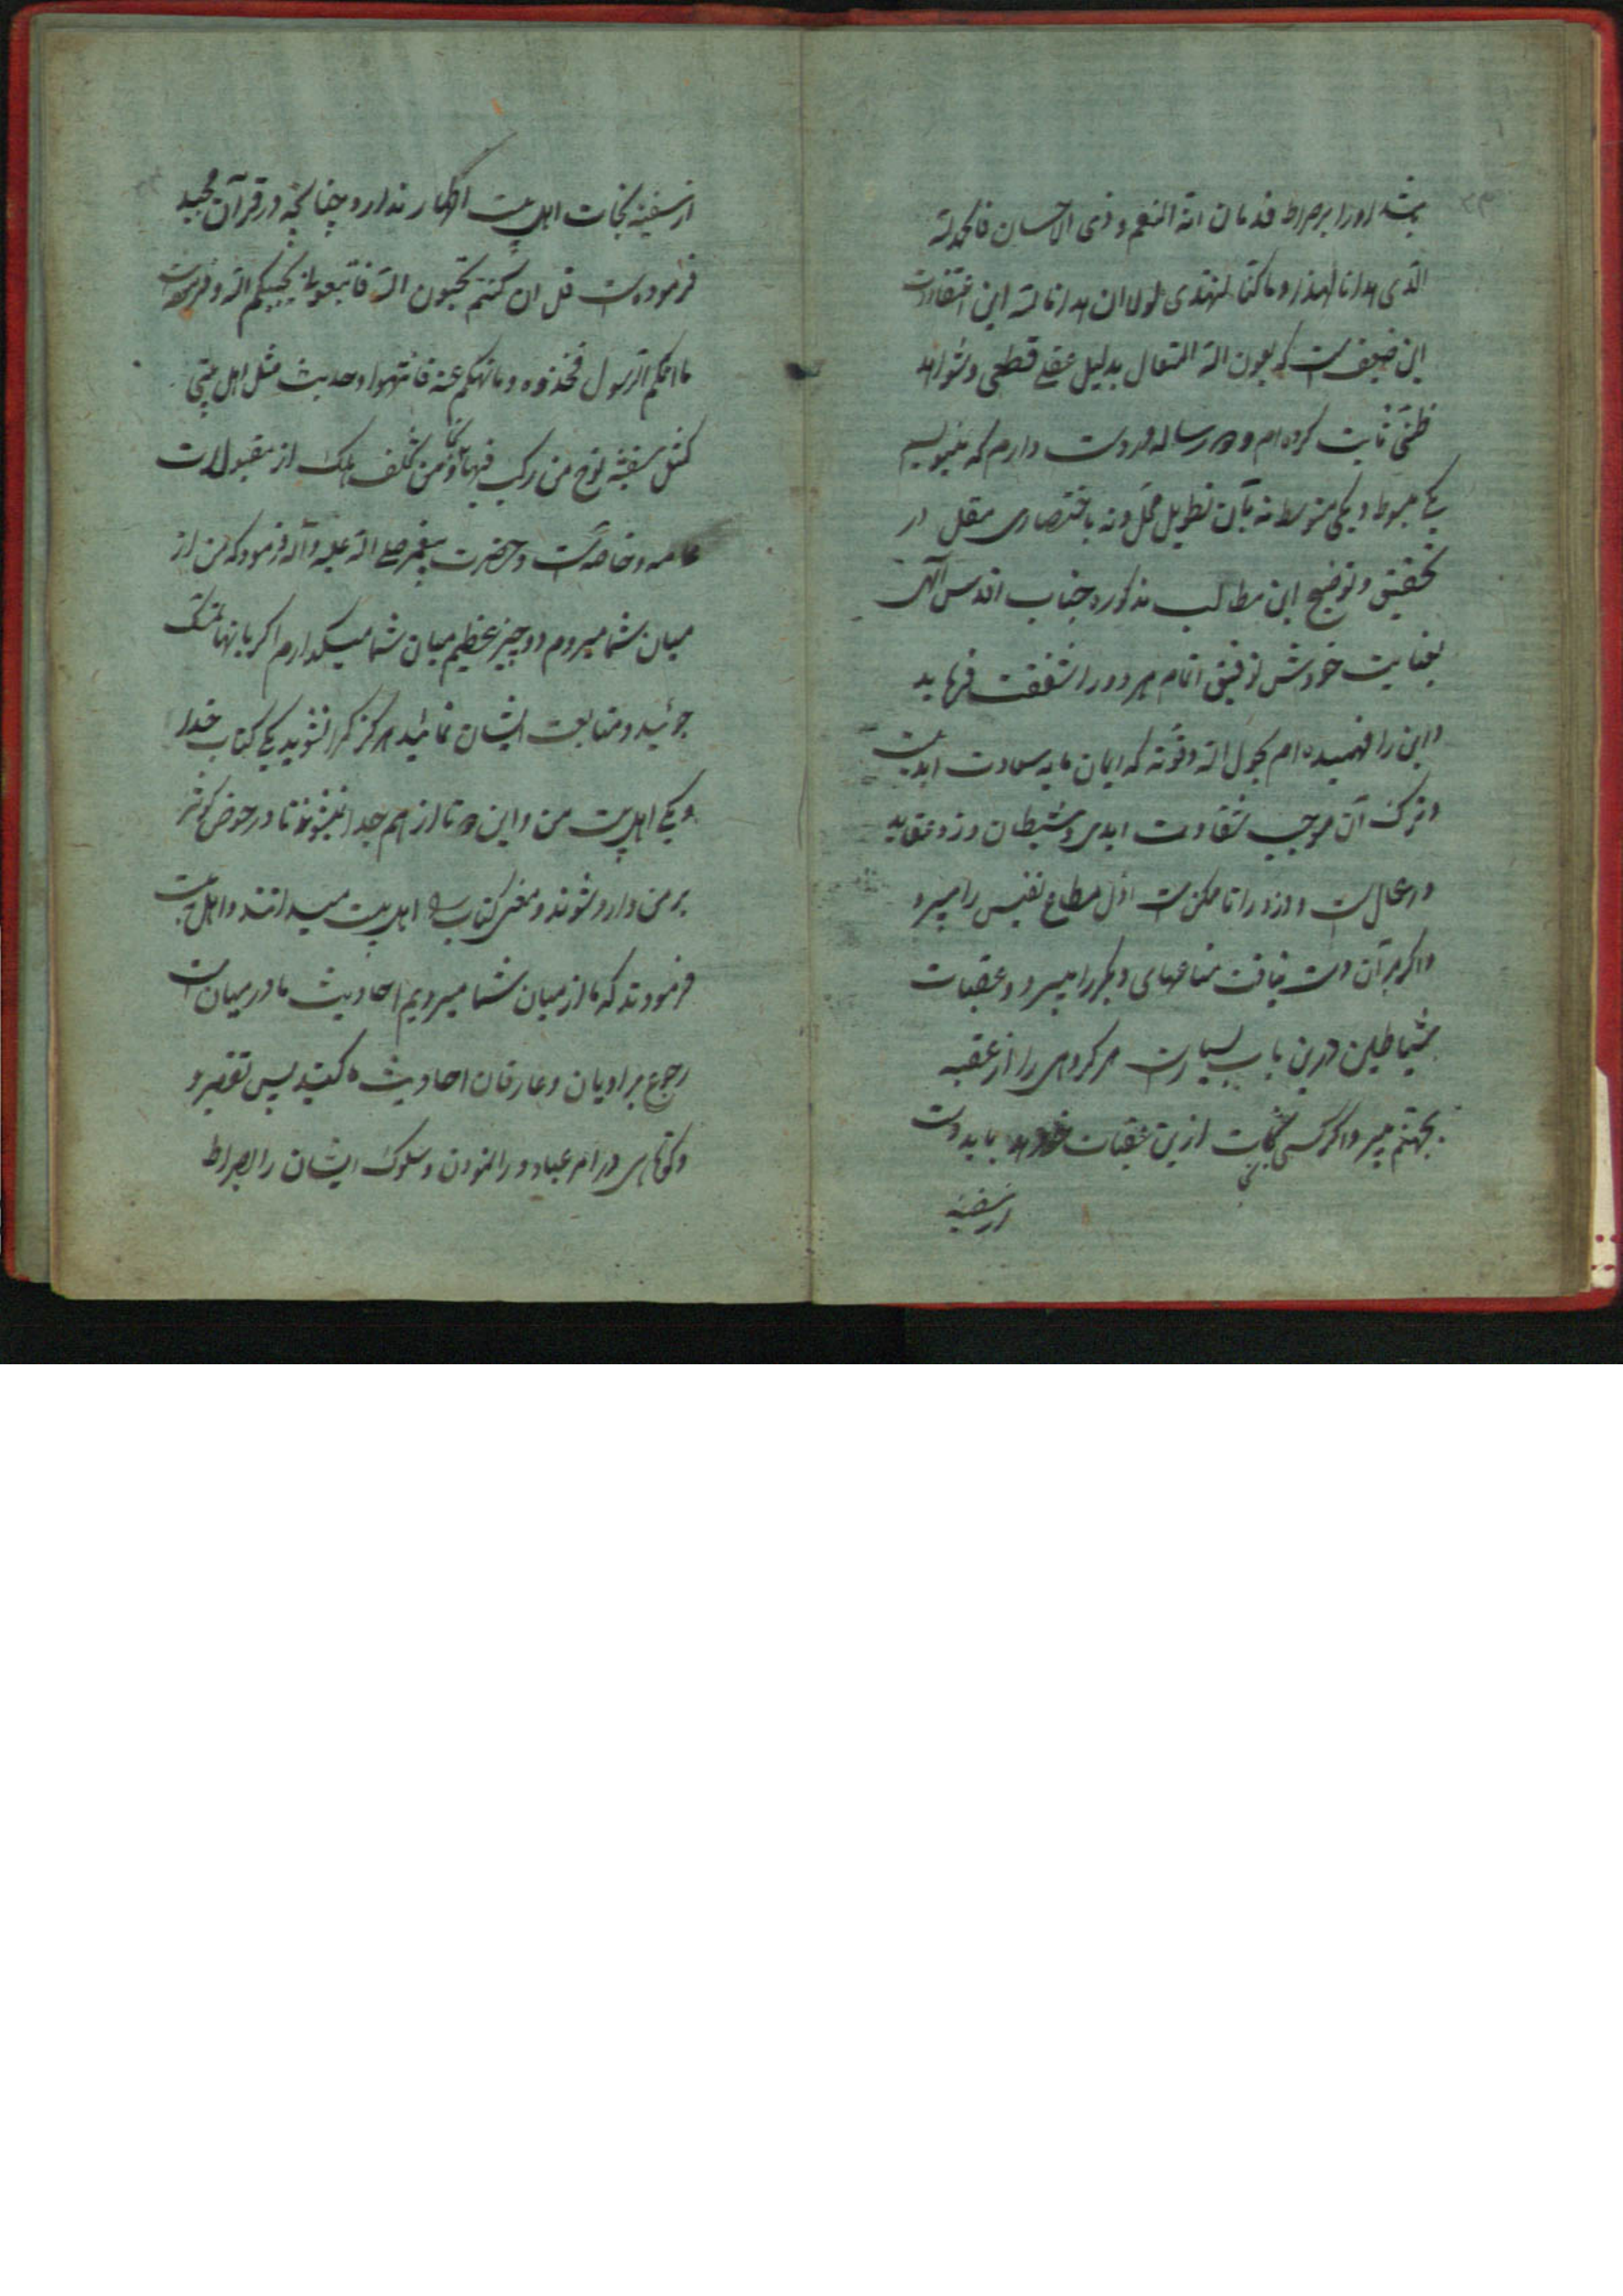 بشد او را بر صراط قدمان انه المنعم و ذی الاحسان فالحمد لله
الّذی هدانا لهذا و ما کنّا لنهتدی لولا ان هدانا الله این اعتقادات
این ضعیف است که بعون الله المتعال بدلیل عقلی قطعی و شواهد
ظنّی ثابت کرده‌ام و دو رساله در دست دارم که مینویسم
یکی مبسوط و یکی متوسط نه بآن تطویل مملّ و نه باختصاری مقلّ در
تحقیق و توضیح این مطالب مذکوره جناب اقدس الهی
بعنایت خودش توفیق اتمام هر دو را شفقت فرماید
و این را فهمیده‌ام بحول الله و قوّته که ایمان مایه سعادت ابدیست
و ترک آن موجب شقاوت ابدی و شیطان دزد عقاید
و اعمال است و دزد را تا ممکن است اوّل مطاع نفیس را میبرد
و اگر بر آن دست نیافت متاعهای دیگر را میبرد و عقبات
شیاطین درین باب بسیارست هر گروهی را از عقبه
بجهنّم میبرد و اگر کسی نجات ازین عقبات خواهد باید دست
از سفینه
از سفینه نجات اهل بیت اطهار ندارد چنانچه در قرآن مجید
فرموده است قل ان کنتم تحبّون الله فاتبعونی یحببکم الله و فرموده است
ما اتیکم الرسول فخذوه و ما نهیکم عنه فانتهوا و حدیث مثل اهل بیتی
کمثل سفینة نوح من رکب فیها نجا و من تخلف هلک از مقبولات
عامه و خاصه است و حضرت پیغمبر صلی الله علیه و آله فرمود که من از
میان شما میروم دو چیز عظیم میان شما میگذارم اگر بانها تمسّک
جوئید و متابعت ایشان نمائید هرگز گمراه نشوید یکی کتاب خدا
و یکی اهل بیت من و این دو تا از هم جدا نمیشوند تا در حوض کوثر
بر من وارد شوند و معنی کتاب را اهل بیت میدانند و اهل بیت
فرمودند که ما از میان شما میرویم احادیث ما در میان است
رجوع براویان و عارفان احادیث ما کنید پس تقصیر و
کوتاهی در امر عباد و را نمودن و سلوک ایشان را بصراط